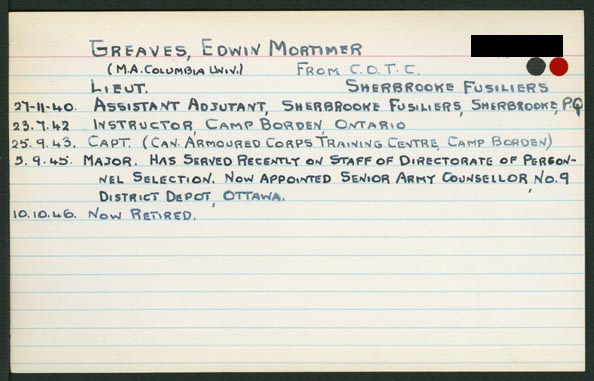 GREAVES, EDWIN MORTIMER
(M.A. COLUMBIA UNIV.) FROM C.O.T.C.
LIEUT. SHERBROOKE FUSILIERS
27-11-40. ASSISTANT ADJUTANT, SHERBROOKE FUSILIERS, SHERBROOKE, P.Q
23.7.42 INSTRUCTOR, CAMP BORDEN, ONTARIO
25.9.43. CAPT. (CAN. ARMOURED CORPS TRAINING CENTRE, CAMP BORDEN)
5.9.45. MAJOR. HAS SERVED RECENTLY ON STAFF OF DIRECTORATE OF PERSON-
NEL SELECTION. NOW APPOINTED SENIOR ARMY COUNSELLOR, NO.9
DISTRICT DEPOT, OTTAWA.
10.10.46. NOW RETIRED.